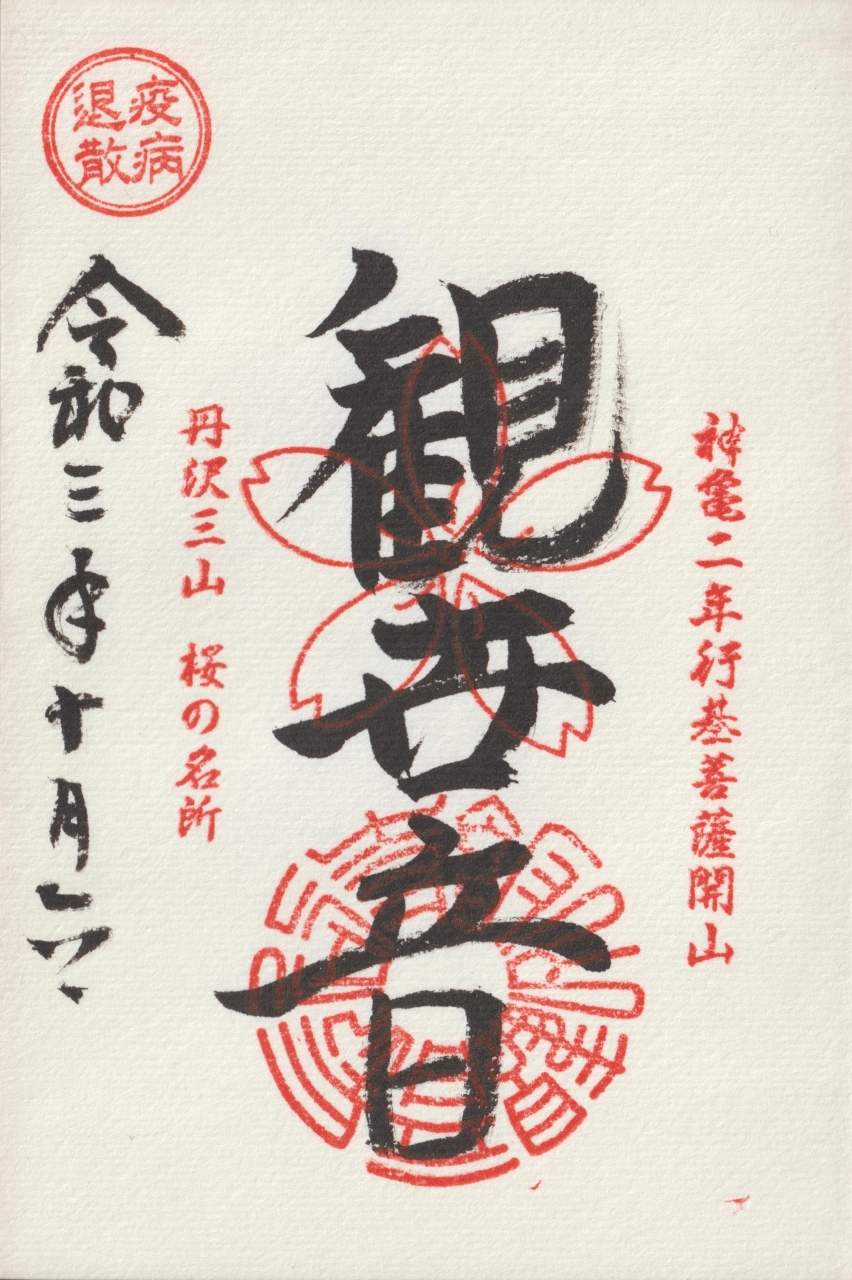 神亀二年行基菩薩開山
観世音
丹沢三山 桜の名所
疫病
退散
令和三年十月六